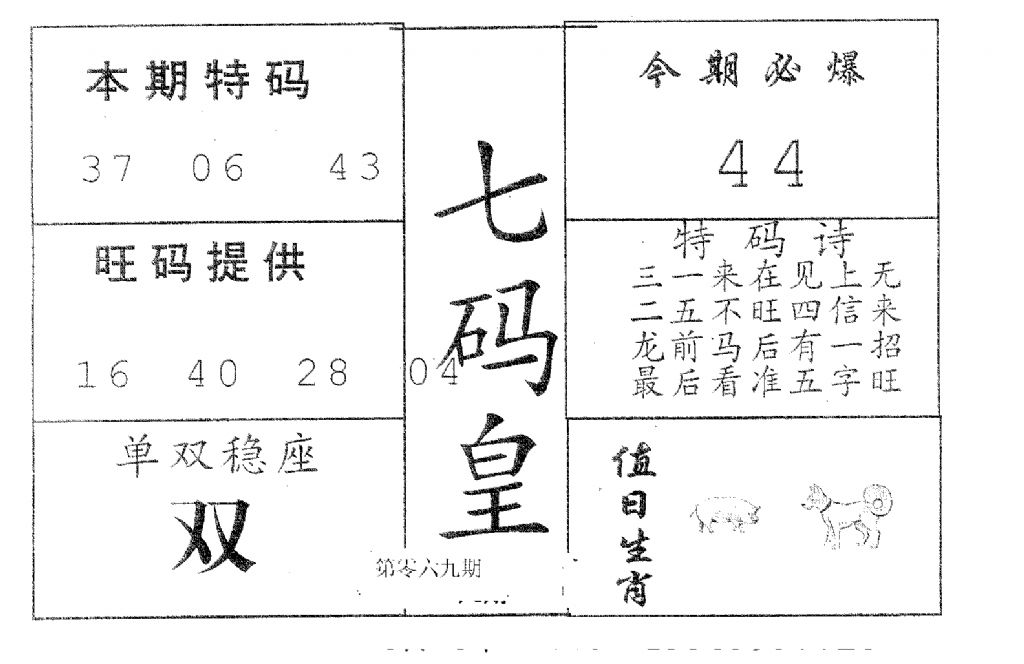 本期特码
37 06 43
旺码提供
16 40 28 04
单双稳座
双
七码皇
第零六九期
今期必爆
44
特码诗
三一来在见上无
二五不旺四信来
龙前马后有一招
最后看准五字旺
值日生肖